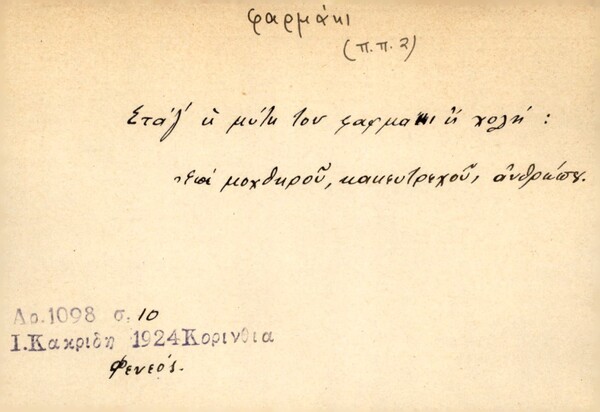 φαρμάκι
(π.π. 2)
Στάζ' ἡ μύτη του φαρμάκι κὴ χολή :
Ἐπὶ μοχθηροῦ, κακεντρεχοῦς ἀνθρώπου.
Αρ. 1098 σ. 10
Ι. Κακριδη 1924 Κορινθια
Φενεός.